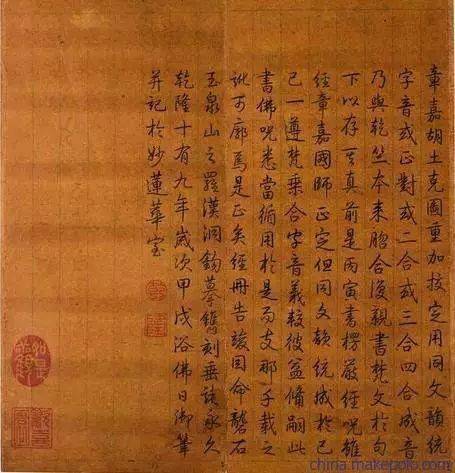 章嘉胡土克圖重加校定用同文韻統
字音或正對或二合或三合四合成音
乃與乾竺本來脗合復親書梵文於句
下以存其真前是丙寅書楞嚴經咒雖
經章嘉國師正定但同文韻統成於己
已一遵梵乘合字音義較彼益備嗣此
書佛咒悉當循用於是而支那子載之
訛可廓焉是正矣經冊告竣因命勒石
玉泉山之羅漢洞鉤摹鐫刻垂諸永久
乾隆十有九年歲次甲戌浴佛日御筆
并記於妙蓮華室
china.makepolo.com